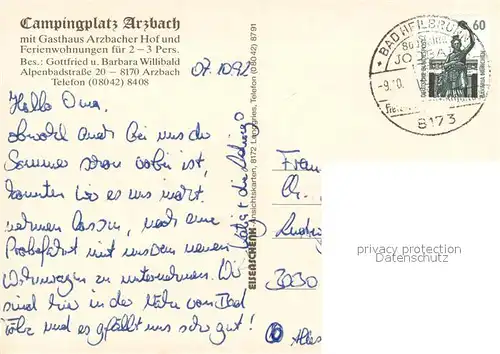 Campingplatz Arzbach
mit Gasthaus Arzbacher Hof und
Ferienwohnungen für 2 – 3 Pers.
Bes.: Gottfried u. Barbara Willibald
Alpenbadstraße 20 – 8170 Arzbach
Telefon (08042) 8408
07.10.92
Hallo Oma,
obwohl auch bei uns der
Sommer schon vorbei ist,
konnten wir es uns nicht
nehmen lassen, noch eine
Probefahrt mit unserem neuen
Wohnwagen zu unternehmen. Wir
sind hier in der Nähe von Bad
Tölz und es gefällt uns sehr gut!
EISENSCHENK-Ansichtskarten, 8172 Lenggries, Telefon (08042) 8791
60
BAD HEILBRUNN
-9.10.
8173
Frau
3030
privacy protection
DANIMARK.COM